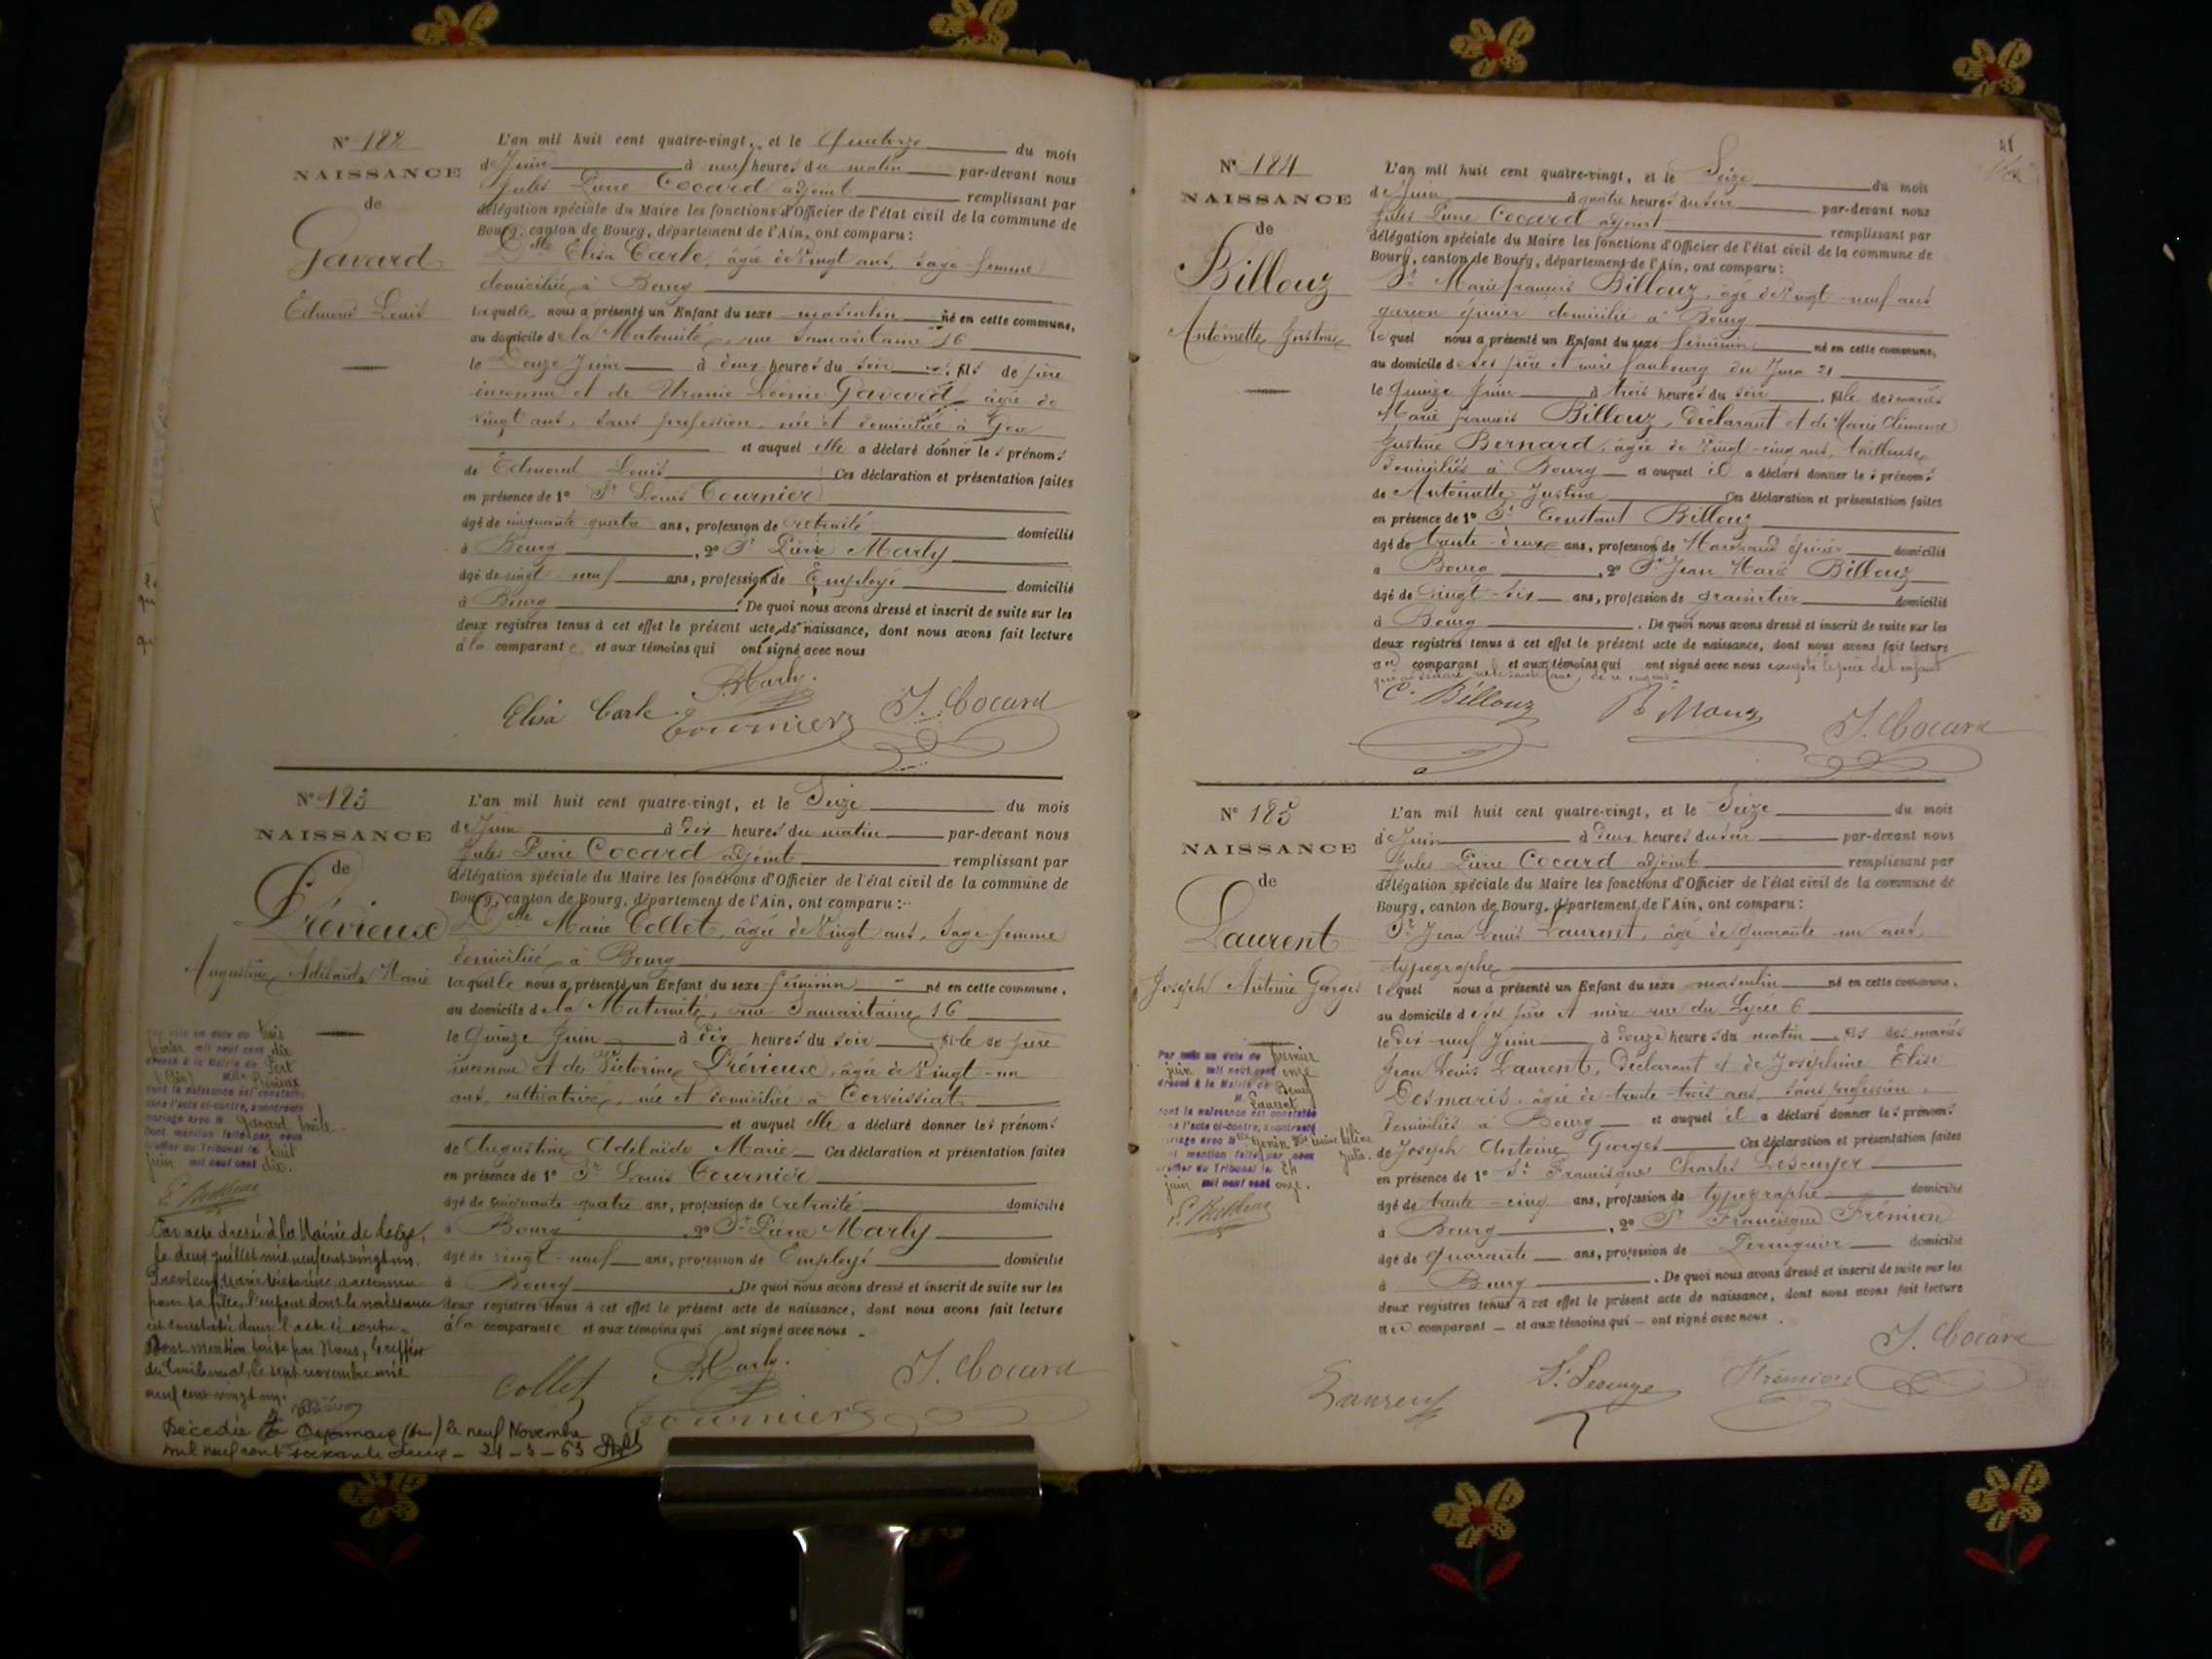 N° 182
NAISSANCE
de
Gavard
Edmond Louis
L'an mil huit cent quatre-vingt, et le Quatorze du mois
de Juin à neuf heures du matin par-devant nous
Jules Pierre Cocard adjoint remplissant par
délégation spéciale du Maire les fonctions d'Officier de l'état civil de la commune de
Bourg, canton de Bourg, département de l'Ain, ont comparu :
Dlle Elisa Carle, âgée de Vingt ans, sage-femme
domiciliée à Bourg
laquelle nous a présenté un Enfant du sexe masculin né en cette commune,
au domicile de la Maternité, rue Samaritaine 16
le Douze Juin à deux heures du soir, fils de père
inconnu et de Uranie Léonie Gavard, âgée de
vingt ans, sans profession, née et domiciliée à Gex
et auquel elle a déclaré donner les prénoms
de Edmond Louis Ces déclaration et présentation faites
en présence de 1° Sr Louis Tournier
âgé de cinquante-quatre ans, profession de retraité domicilié
à Bourg, 2° Sr Pierre Marly
âgé de vingt-neuf ans, profession de Employé domicilié
à Bourg. De quoi nous avons dressé et inscrit de suite sur les
deux registres tenus à cet effet le présent acte de naissance, dont nous avons fait lecture
à la comparante et aux témoins qui ont signé avec nous
P. Marly.
Elisa Carle Tournier J. Cocard
N° 183
NAISSANCE
de
Prévieux
Augustine Adélaïde Marie
L'an mil huit cent quatre-vingt, et le Seize du mois
de Juin à dix heures du matin par-devant nous
Jules Pierre Cocard adjoint remplissant par
délégation spéciale du Maire les fonctions d'Officier de l'état civil de la commune de
Bourg, canton de Bourg, département de l'Ain, ont comparu :
Dlle Marie Collet, âgée de Vingt ans, sage-femme
domiciliée à Bourg
laquelle nous a présenté un Enfant du sexe féminin né en cette commune,
au domicile de la Maternité, rue Samaritaine 16
le Quinze Juin à dix heures du soir, fille de père
inconnu et de Victorine Prévieux, âgée de Vingt-un
ans, cultivatrice, née et domiciliée à Corveissiat
et auquel elle a déclaré donner les prénoms
de Augustine Adélaïde Marie Ces déclaration et présentation faites
en présence de 1° Sr Louis Tournier
âgé de cinquante-quatre ans, profession de retraité domicilié
à Bourg, 2° Sr Pierre Marly
âgé de vingt-neuf ans, profession de Employé domicilié
à Bourg De quoi nous avons dressé et inscrit de suite sur les
deux registres tenus à cet effet le présent acte de naissance, dont nous avons fait lecture
à la comparante et aux témoins qui ont signé avec nous
Collet P. Marly. J. Cocard
Tournier
Par acte en date du trois
mil neuf cent dix
dressé à la Mairie de Port
(Ain) Mlle Prévieux
dont la naissance est constatée
dans l'acte ci-contre, a contracté
mariage avec M Gavard Emile.
Dont mention faite par nous
Greffier du Tribunal le huit
juin mil neuf cent dix.
Par acte dressé à la Mairie de
le deux juillet mil neuf cent vingt un
Prévieux Marie Victorine a reconnu
pour sa fille, l'enfant dont la naissance
est constatée dans l'acte ci-contre.
Dont mention faite par Nous, Greffier
du Tribunal, le sept novembre mil
neuf cent vingt un.
Décédée à Oyonnax (Ain) le neuf Novembre
mil neuf cent soixante deux - 21-3-63
N° 184
NAISSANCE
de
Billouz
Antoinette Justine
L'an mil huit cent quatre-vingt, et le Seize du mois
de Juin à quatre heures du soir par-devant nous
Jules Pierre Cocard adjoint remplissant par
délégation spéciale du Maire les fonctions d'Officier de l'état civil de la commune de
Bourg, canton de Bourg, département de l'Ain, ont comparu :
Sr Marie françois Billouz, âgé de Vingt-neuf ans
garçon épicier domicilié à Bourg
lequel nous a présenté un Enfant du sexe féminin né en cette commune,
au domicile de ses père et mère faubourg du Jura 21
le Quinze Juin à trois heures du soir, fille des mariés
Marie françois Billouz, déclarant et de Marie Clémence
Justine Bernard, âgée de Vingt-cinq ans, tailleuse,
domiciliés à Bourg et auquel il a déclaré donner les prénoms
de Antoinette Justine Ces déclaration et présentation faites
en présence de 1° Sr Constant Billouz
âgé de trente-deux ans, profession de Marchand épicier domicilié
à Bourg, 2° Sr Jean Marie Billouz
âgé de vingt-six ans, profession de grainetier domicilié
à Bourg. De quoi nous avons dressé et inscrit de suite sur les
deux registres tenus à cet effet le présent acte de naissance, dont nous avons fait lecture
au comparant et aux témoins qui ont signé avec nous excepté le père de l'enfant
qui a déclaré ne le savoir de ce enquis.
C. Billouz Billouz J. Cocard
N° 185
NAISSANCE
de
Laurent
Joseph Antoine Georges
L'an mil huit cent quatre-vingt, et le Seize du mois
de Juin à deux heures du soir par-devant nous
Jules Pierre Cocard adjoint remplissant par
délégation spéciale du Maire les fonctions d'Officier de l'état civil de la commune de
Bourg, canton de Bourg, département de l'Ain, ont comparu :
Sr Jean Louis Laurent, âgé de quarante-un ans,
typographe
lequel nous a présenté un Enfant du sexe masculin né en cette commune,
au domicile de ses père et mère rue du Lycée 6
le dix-neuf Juin à douze heures du matin fils des mariés
Jean Louis Laurent, déclarant et de Joséphine Elise
Desmaris, âgée de trente-trois ans, sans profession,
domiciliés à Bourg et auquel il a déclaré donner les prénoms
de Joseph Antoine Georges Ces déclaration et présentation faites
en présence de 1° Sr Francisque Charles Lescuyer
âgé de trente-cinq ans, profession de typographe domicilié
à Bourg, 2° Sr Francisque Frémion
âgé de quarante ans, profession de Perruquier domicilié
à Bourg. De quoi nous avons dressé et inscrit de suite sur les
deux registres tenus à cet effet le présent acte de naissance, dont nous avons fait lecture
au comparant et aux témoins qui ont signé avec nous.
J. Cocard
Laurent Lescuyer Frémion
Par acte en date du premier
juin mil neuf cent onze
dressé à la Mairie de Bourg
M. Laurent
dont la naissance est constatée
dans l'acte ci-contre, a contracté
mariage avec Mlle Genin Hélène
Julie.
Dont mention faite par nous
Greffier du Tribunal le 24
juin mil neuf cent onze.